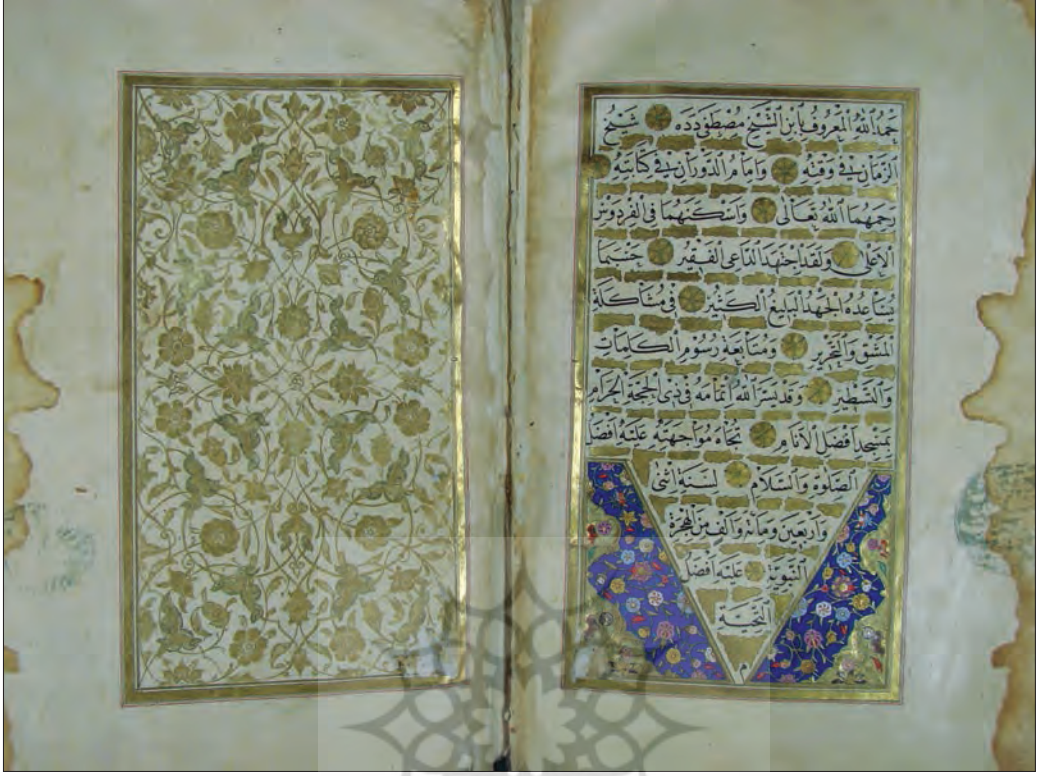 حَمْدُ اللهِ الْمَعْرُوفُ بِابْنِ الشَّيْخِ مُصْطَفٰى دَدَه شَيْخُ
الزَّمَانِ فِي وَقْتِهِ وَاِمَامُ الدَّوْرَانِ فِي كِتَابَتِهِ
رَحِمَهُمَا اللهُ تَعَالٰى وَاَسْكَنَهُمَا فِي الْفِرْدَوْسِ
الْاَعْلٰى وَلَقَدِ اجْتَهَدَ الدَّاعِي الْفَقِيرُ حَسْبَمَا
يُسَاعِدُهُ الْجَهْدُ الْبَلِيغُ الْكَثِيرُ فِي مُشَاكَلَةِ
الْمَشْقِ وَالتَّحْرِيرِ وَمُتَابَعَةِ رُسُومِ الْكَلِمَاتِ
وَالتَّسْطِيرِ وَقَدْ يَسَّرَ اللهُ اِتْمَامَهُ فِي ذِي الْحِجَّةِ الْحَرَامِ
بِمَسْجِدِ اَفْضَلِ الْاَنَامِ تُجَاهَ مُوَاجَهَتِهِ عَلَيْهِ اَفْضَلُ
الصَّلٰوةِ وَالسَّلَامِ لِسَنَةِ اثْنَى
وَاَرْبَعِينَ وَمِائَةٍ وَاَلْفٍ مِنَ الْهِجْرَةِ
النَّبَوِيَّةِ عَلَيْهِ اَفْضَلُ
التَّحِيَّةِ
م